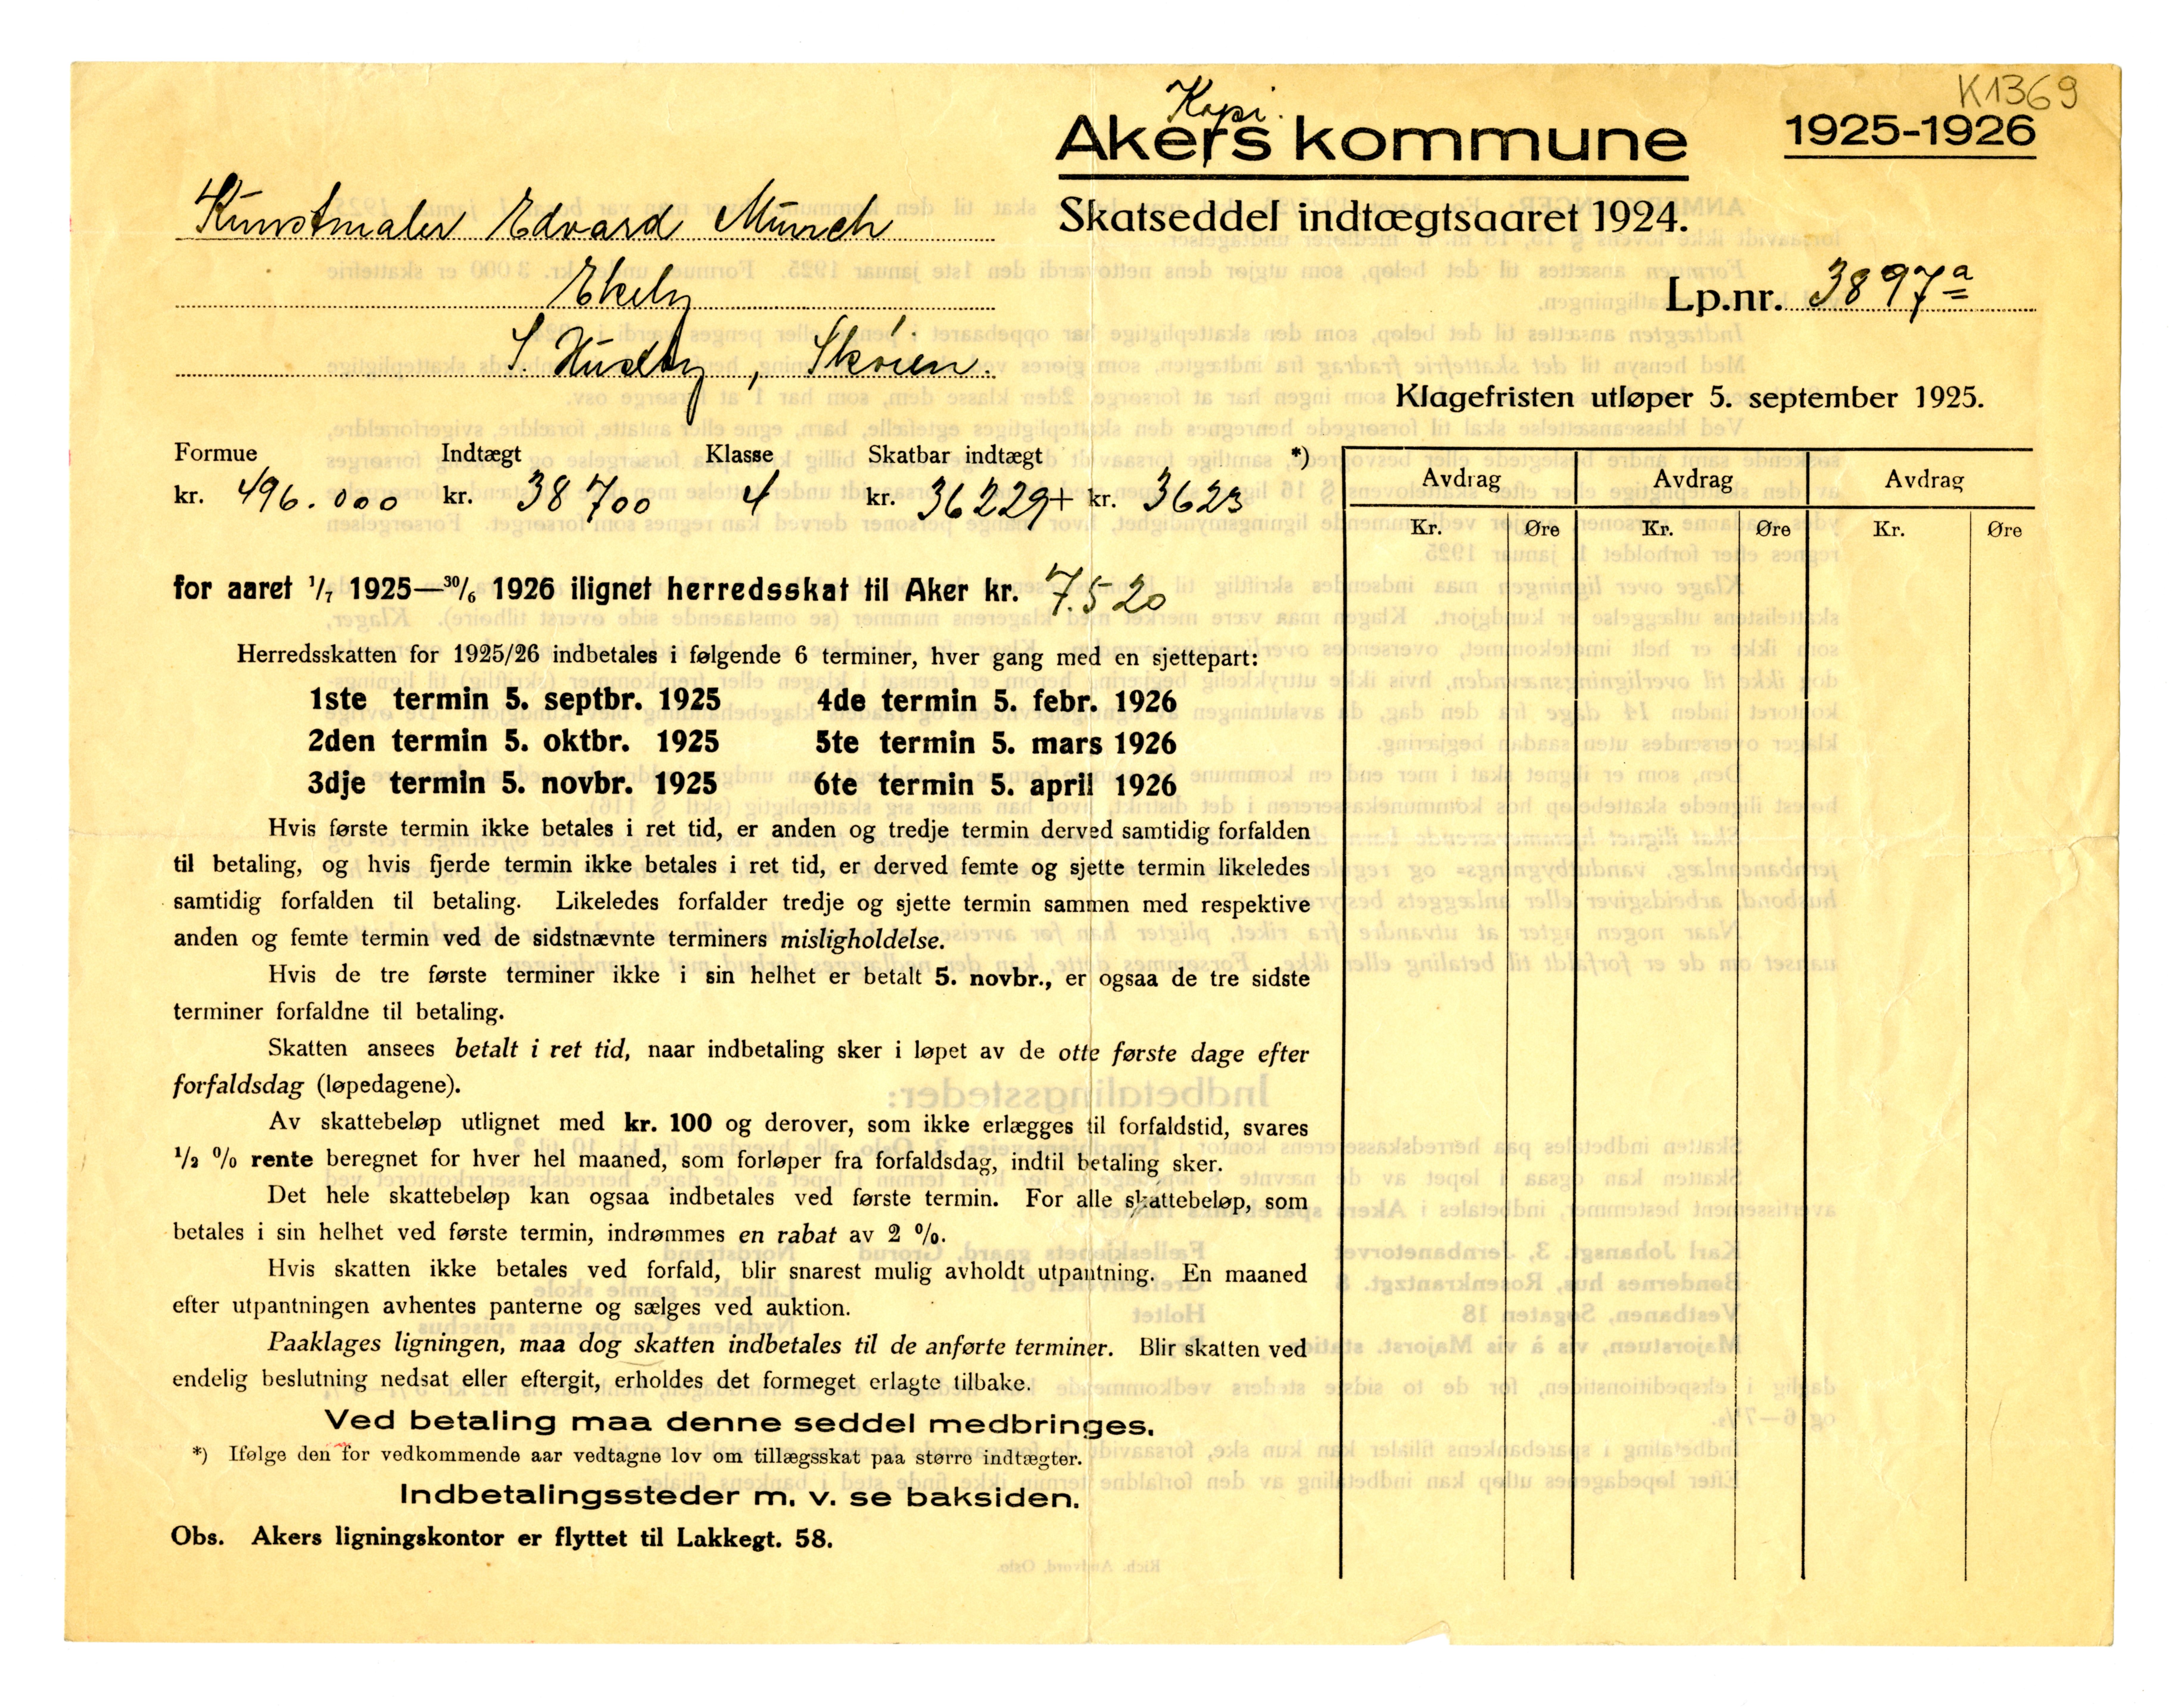 K1369
Kopi.
Akers kommune
1925-1926
Skatseddel indtægtsaaret 1924.
Kunstmaler Edvard Munch
Ekely
S. Huseby, Skøien.
Lp.nr. 3897a
Klagefristen utløper 5. september 1925.
Formue Indtægt Klasse Skatbar indtægt *)
kr. 496.000 kr. 38700 4 kr. 36229+ kr. 3623
Avdrag Avdrag Avdrag
Kr. Øre Kr. Øre Kr. Øre
for aaret 1/7 1925—30/6 1926 ilignet herredsskat til Aker kr. 7.520
Herredsskatten for 1925/26 indbetales i følgende 6 terminer, hver gang med en sjettepart:
1ste termin 5. septbr. 1925 4de termin 5. febr. 1926
2den termin 5. oktbr. 1925 5te termin 5. mars 1926
3dje termin 5. novbr. 1925 6te termin 5. april 1926
Hvis første termin ikke betales i ret tid, er anden og tredje termin derved samtidig forfalden
til betaling, og hvis fjerde termin ikke betales i ret tid, er derved femte og sjette termin likeledes
samtidig forfalden til betaling. Likeledes forfalder tredje og sjette termin sammen med respektive
anden og femte termin ved de sidstnævnte terminers misligholdelse.
Hvis de tre første terminer ikke i sin helhet er betalt 5. novbr., er ogsaa de tre sidste
terminer forfaldne til betaling.
Skatten ansees betalt i ret tid, naar indbetaling sker i løpet av de otte første dage efter
forfaldsdag (løpedagene).
Av skattebeløp utlignet med kr. 100 og derover, som ikke erlægges til forfaldstid, svares
1/2 % rente beregnet for hver hel maaned, som forløper fra forfaldsdag, indtil betaling sker.
Det hele skattebeløp kan ogsaa indbetales ved første termin. For alle skattebeløp, som
betales i sin helhet ved første termin, indrømmes en rabat av 2 %.
Hvis skatten ikke betales ved forfald, blir snarest mulig avholdt utpantning. En maaned
efter utpantningen avhentes panterne og sælges ved auktion.
Paaklages ligningen, maa dog skatten indbetales til de anførte terminer. Blir skatten ved
endelig beslutning nedsat eller eftergit, erholdes det formeget erlagte tilbake.
Ved betaling maa denne seddel medbringes.
*) Ifølge den for vedkommende aar vedtagne lov om tillægsskat paa større indtægter.
Indbetalingssteder m. v. se baksiden.
Obs. Akers ligningskontor er flyttet til Lakkegt. 58.